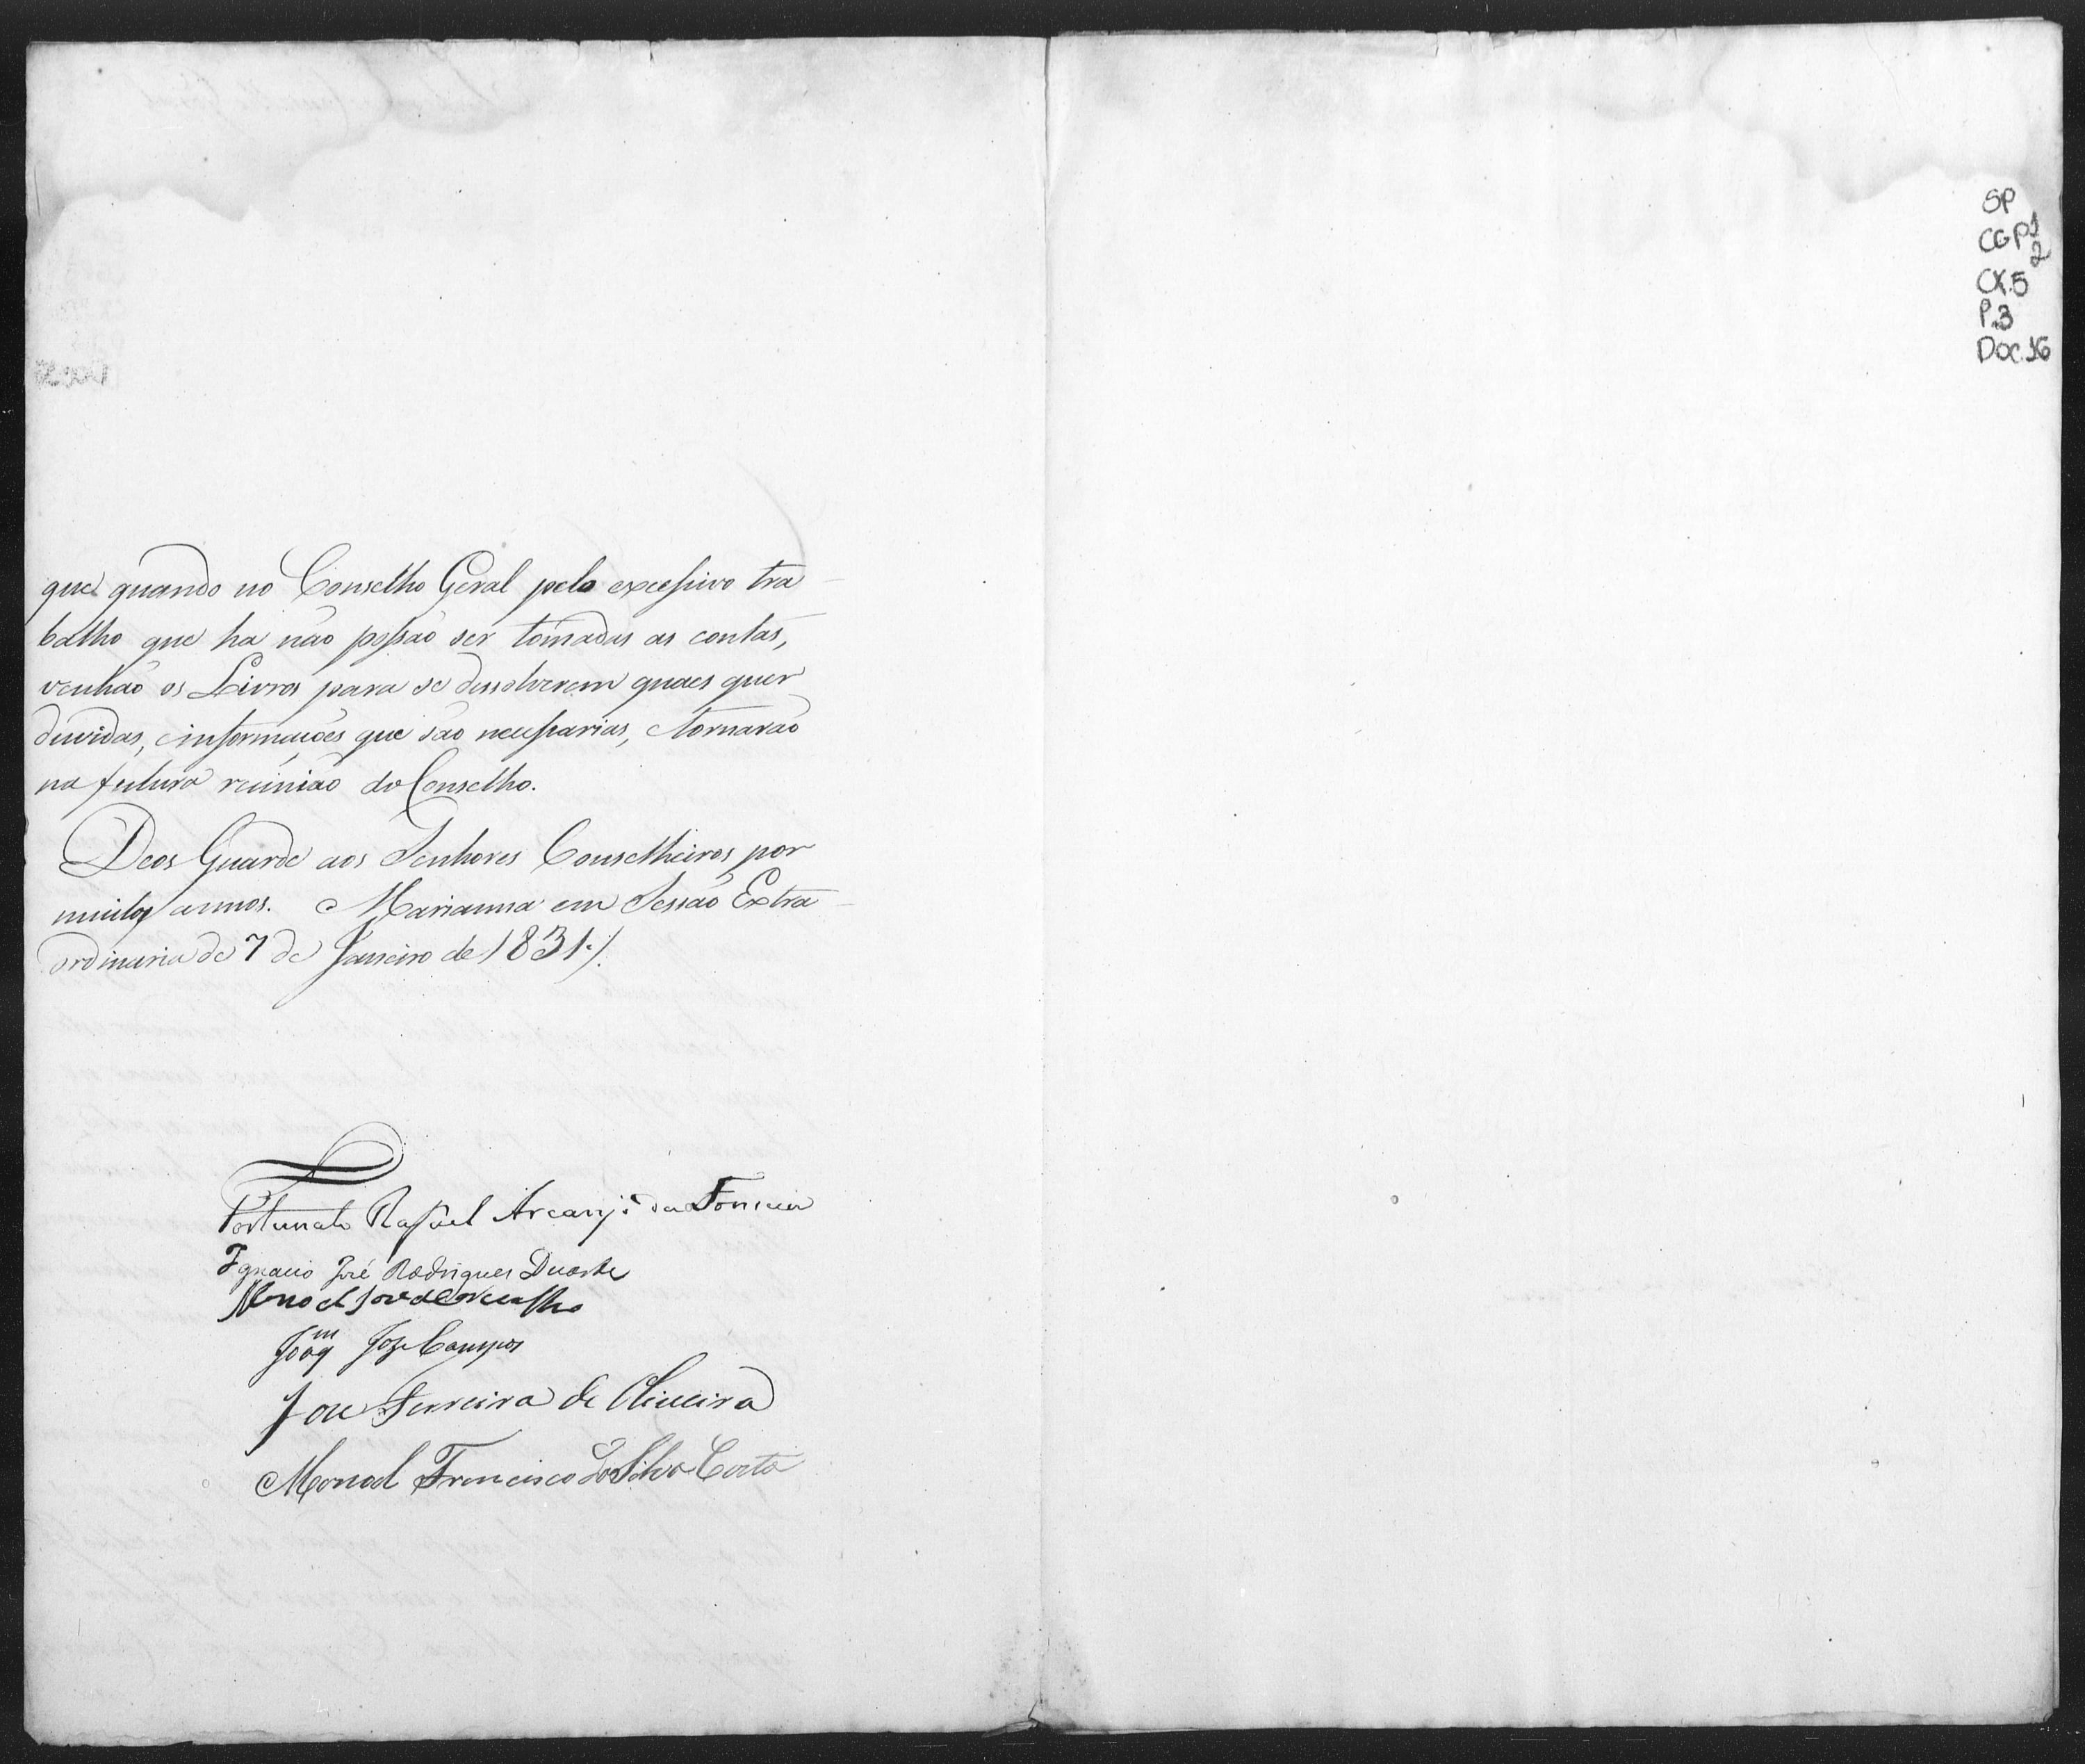 que quando no Conselho Geral pelo excessivo tra
balho que ha não possão ser tomadas as contas,
venhão os Livros para se dessolverem quaes quer
duvidas, e informaçoẽs que são necessarias, e tornarão
na futura reunião do Conselho.
Deos Guarde aos Senhores Conselheiros por
muitos annos. Marianna em Sessão Extra
ordinaria de 7 de Janeiro de 1831./.
Fortunato Rafael Arcanjo da Fonseca
Ignacio José Rodrigues Duarte
Manoel Jose de Carvalho
Joaqm Joze Campos
Jose Ferreira de Oliveira
Manoel Francisco da Silva Costa
SP
CGP1
2
CX.5
P.3
Doc.16